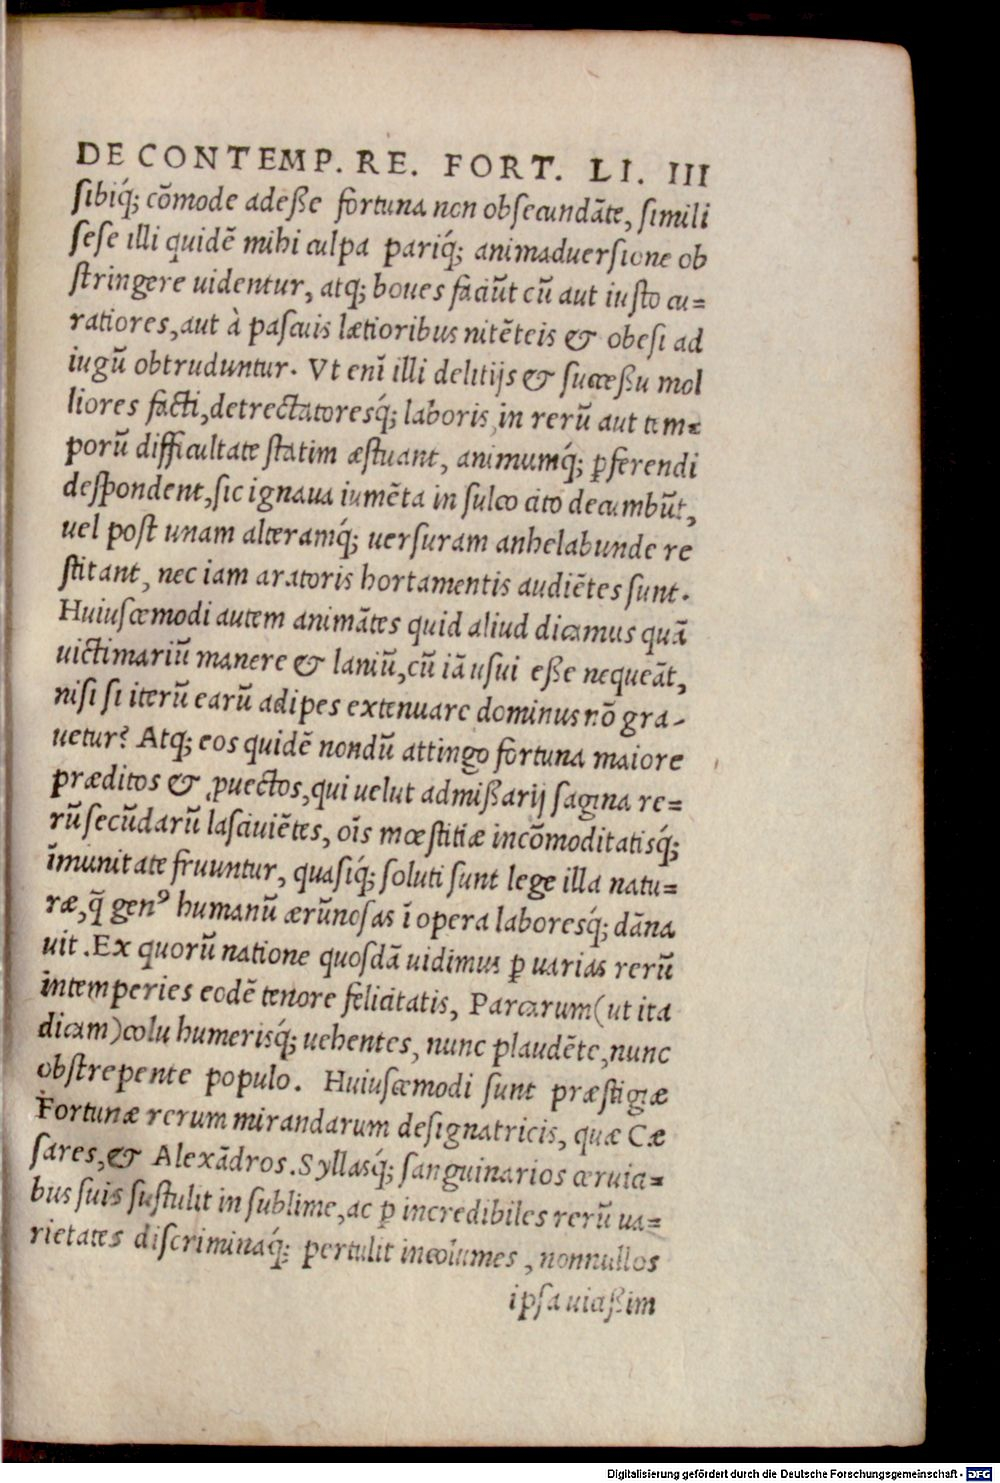 DE CONTEMP. RE. FORT. LI. III
ſibiq́; cõmode adeße fortuna non obſecundãte, ſimili
ſeſe illi quidẽ mihi culpa pariq́; animaduerſione ob
ſtringere uidentur, atq; boues faciũt cũ aut iuſto cu=
ratiores, aut à paſcuis lætioribus nitẽteis & obeſi ad
iugũ obtruduntur. Vt enĩ illi delitijs & ſucceßu mol
liores facti, detrectatoresq́; laboris, in rerũ aut tem=
porũ difficultate ſtatim æſtuant, animumq́; ꝑferendi
deſpondent, ſic ignaua iumẽta in ſulco cito decumbũt,
uel poſt unam alteramq́; uerſuram anhelabunde re
ſtitant, nec iam aratoris hortamentis audiẽtes ſunt.
Huiuſcemodi autem animãtes quid aliud dicamus quã
uictimariũ manere & laniũ, cũ iã uſui eße nequeãt,
niſi ſi iterũ earũ adipes extenuare dominus nõ gra-
uetur? Atq; eos quidẽ nondũ attingo fortuna maiore
præditos & ꝓuectos, qui uelut admißarij ſagina re=
rũ ſecũdarũ laſciuiẽtes, oĩs mœſtitiæ incõmoditatisq́;
ĩmunitate fruuntur, quaſiq́; ſoluti ſunt lege illa natu=
ræ, q̃ genꝰ humanũ ærũnoſas ĩ opera laboresq́; dãna
uit. Ex quorũ natione quoſdã uidimus ꝑ uarias rerũ
intemperies eodẽ tenore felicitatis, Parcarum (ut ita
dicam) colu humerisq́; uehentes, nunc plaudẽte, nunc
obſtrepente populo. Huiuſcemodi ſunt præſtigiæ
Fortunæ rerum mirandarum deſignatricis, quæ Cæ
ſares, & Alexãdros. Syllasq́; ſanguinarios ceruici=
bus ſuis ſuſtulit in ſublime, ac ꝑ incredibiles rerũ ua=
rietates diſcriminaq́; pertulit incolumes, nonnullos
ipſa uicißim
Digitalisierung gefördert durch die Deutsche Forschungsgemeinschaft - DFG